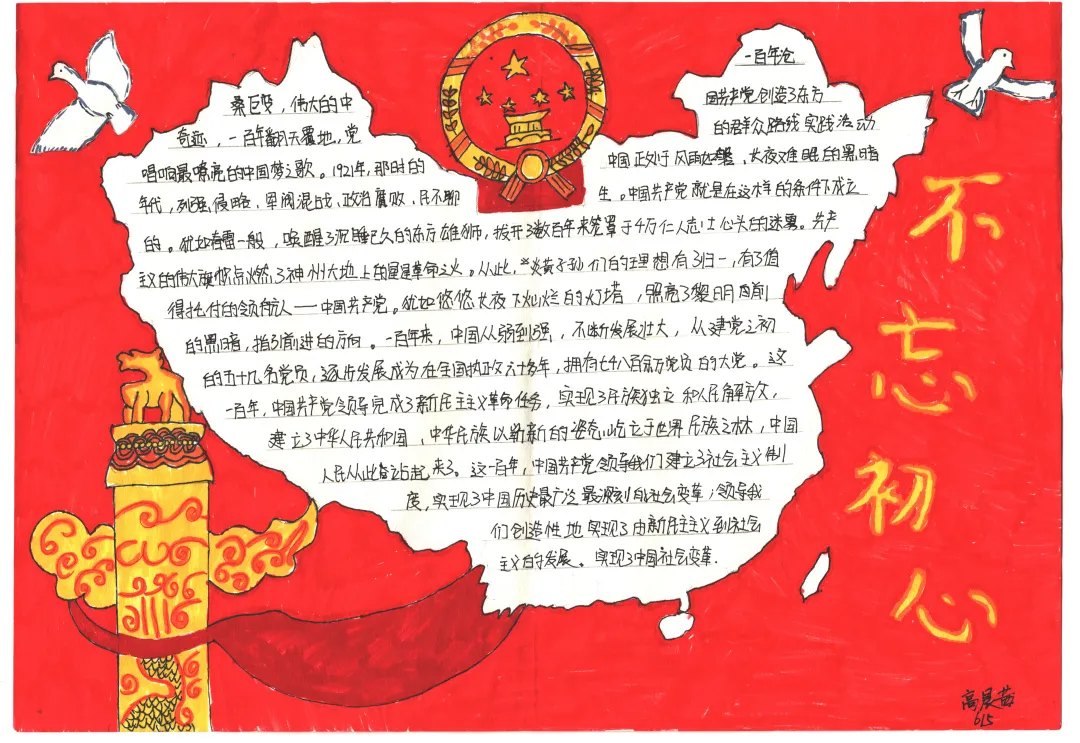 一百年沧
桑巨变，伟大的中
国共产党创造了东方
奇迹，一百年翻天覆地，党
的群众路线实践活动
唱响最嘹亮的中国梦之歌。1921年，那时的
中国正处于风雨如磐、长夜难眠的黑暗
年代，列强侵略、军阀混战、政治腐败、民不聊
生。中国共产党就是在这样的条件下成立
的。犹如春雷一般，唤醒了沉睡已久的东方雄狮，拨开了数百年来笼罩于4万仁人志士心头的迷雾。共产
主义的伟大旗帜点燃了神州大地上的星星革命之火。从此，炎黄子孙们的理想有了归一，有了值
得托付的领航人——中国共产党。犹如悠悠长夜下灿烂的灯塔，照亮了黎明前
的黑暗，指引前进的方向。一百年来，中国从弱到强，不断发展壮大，从建党之初
的五十几名党员，逐步发展成为在全国执政六十多年，拥有七千八百余万党员的大党。这
一百年，中国共产党领导完成了新民主主义革命任务，实现了民族独立和人民解放，
建立了中华人民共和国，中华民族以崭新的姿态屹立于世界民族之林，中国
人民从此站起来了。这一百年，中国共产党领导我们建立了社会主义制
度，实现了中国历史最广泛最深刻的社会变革；领导我
们创造性地实现了由新民主主义到社会
主义的发展。实现了中国社会变革.
不忘初心
高晨
615